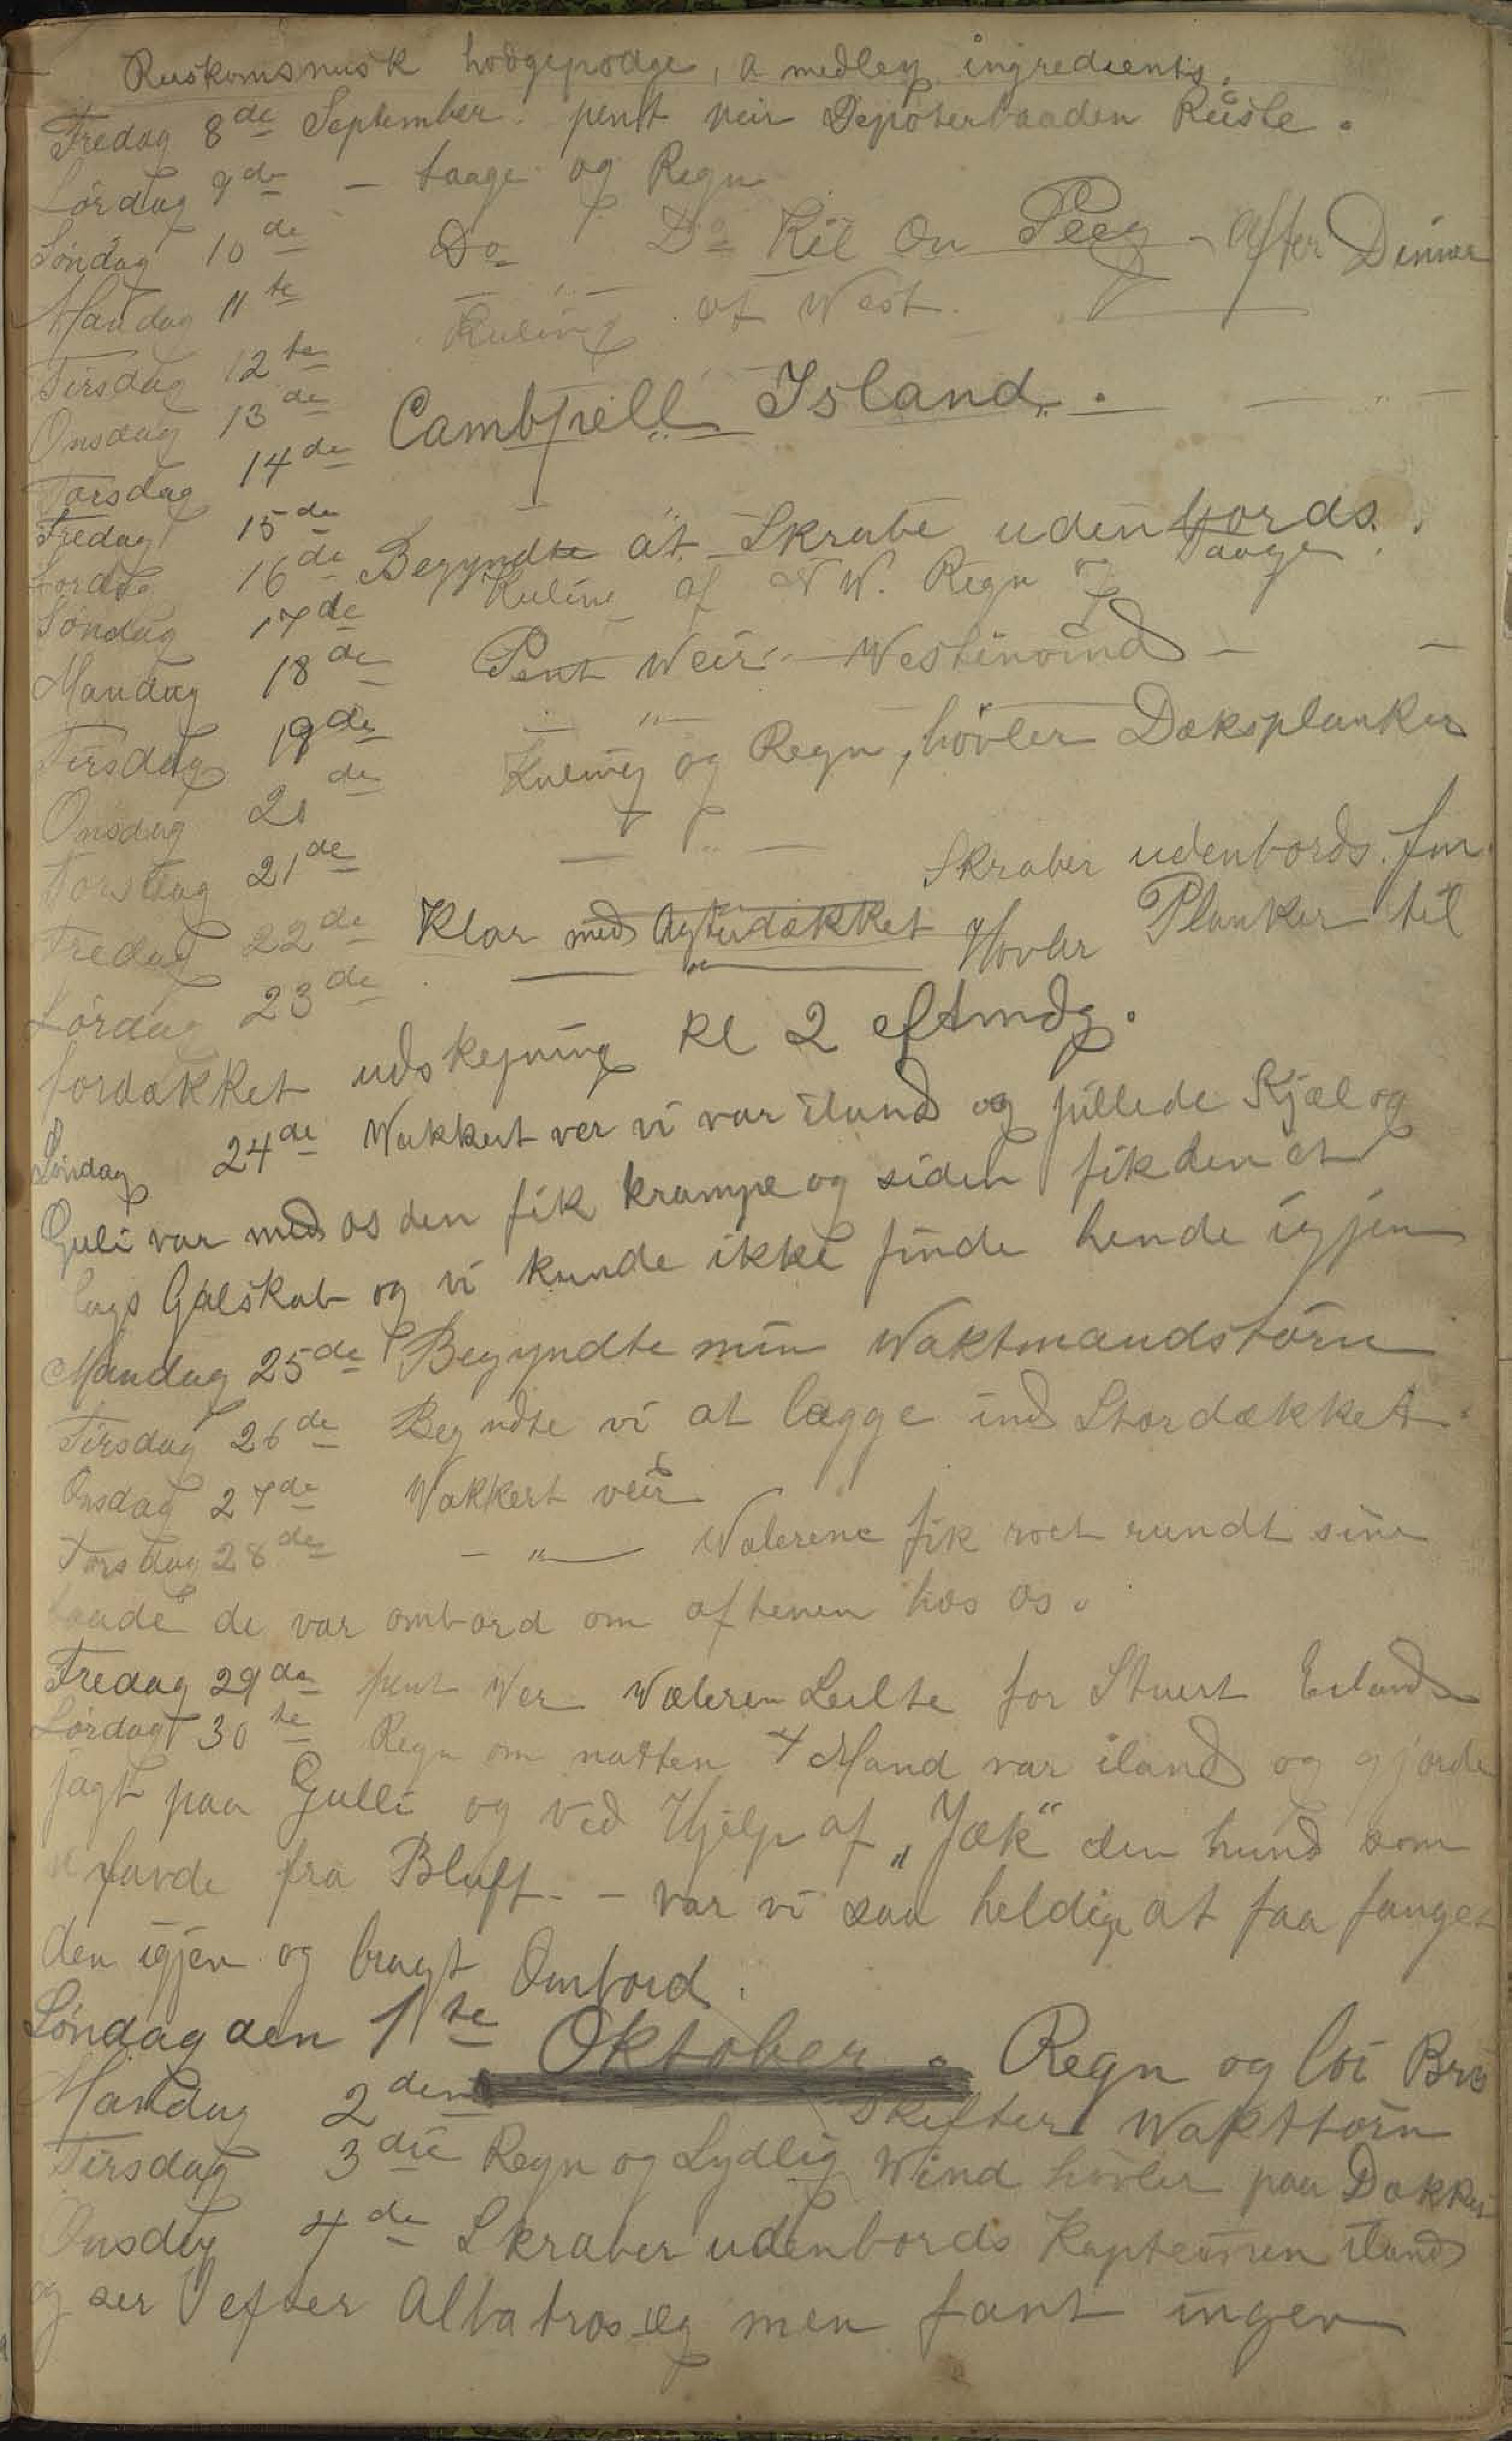 Ruskomsnusk hodgepodge, a medley ingredients.
Fredag 8de September pent veir Depoterbaaden Reiste.
Lördag 9de - taage og Regn
Söndag 10de Do Do Kil On Peeg - After Dinner
Mandag 11te - " -
Tirsdag 12te Kuling af West.
Onsdag 13de
Torsdag 14de Cambpell Island.
Fredag 15de
Lordag 16de Begyndte at Skrabe udenbords.
Söndag 17de Kuling af N W. Regn og Taage.
Mandag 18de Pent Weir - Westinvind -
Tirsdag 19de - " -
Onsdag 20de Kuling og Regn, hövler Dæksplanker
Torsdag 21de - " -
Fredag 22de Klar med Agterdækket Skraber udenbords. fm.
Lördag 23de - " - Hovler Planker til
fordækket udskejning Kl 2 eftmdg.
Söndag 24de Wakkert ver vi var iland og pillede Skjæl og
Guli var med os den fik krampe og siden fik den et
lags Galskab og vi kunde ikke finde hende igjen
Mandag 25de Begyndte min Waktmandstörn
Tirsdag 26de Begndte vi at lægge ind Stordækket.
Onsdag 27de Wakkert veir
Torsdag 28de - " - Walerene fik roet rundt sine
baade de var ombord om aftenen hos os.
Fredag 29de pent Ver Waleren Seilte for Stuert Eiland
Lördag 30te Regn om natten 4 Mand var iland og gjorde
jagt paa Gulli og ved Hjelp af "Jæk" den hund som
vi havde fra Bluff - var vi saa heldige at faa fanget
den igjen og bragt Ombord.
Söndag den 1te Oktober. Regn og loi Bris
Mandag 2den Skifter Wakttörn
Tirsdag 3die Regn og Sydlig Wind hövler paa Dækket
Onsdag 4de Skraber udenbords Kapteinen iland
og ser efter Albatros æg men fant ingen